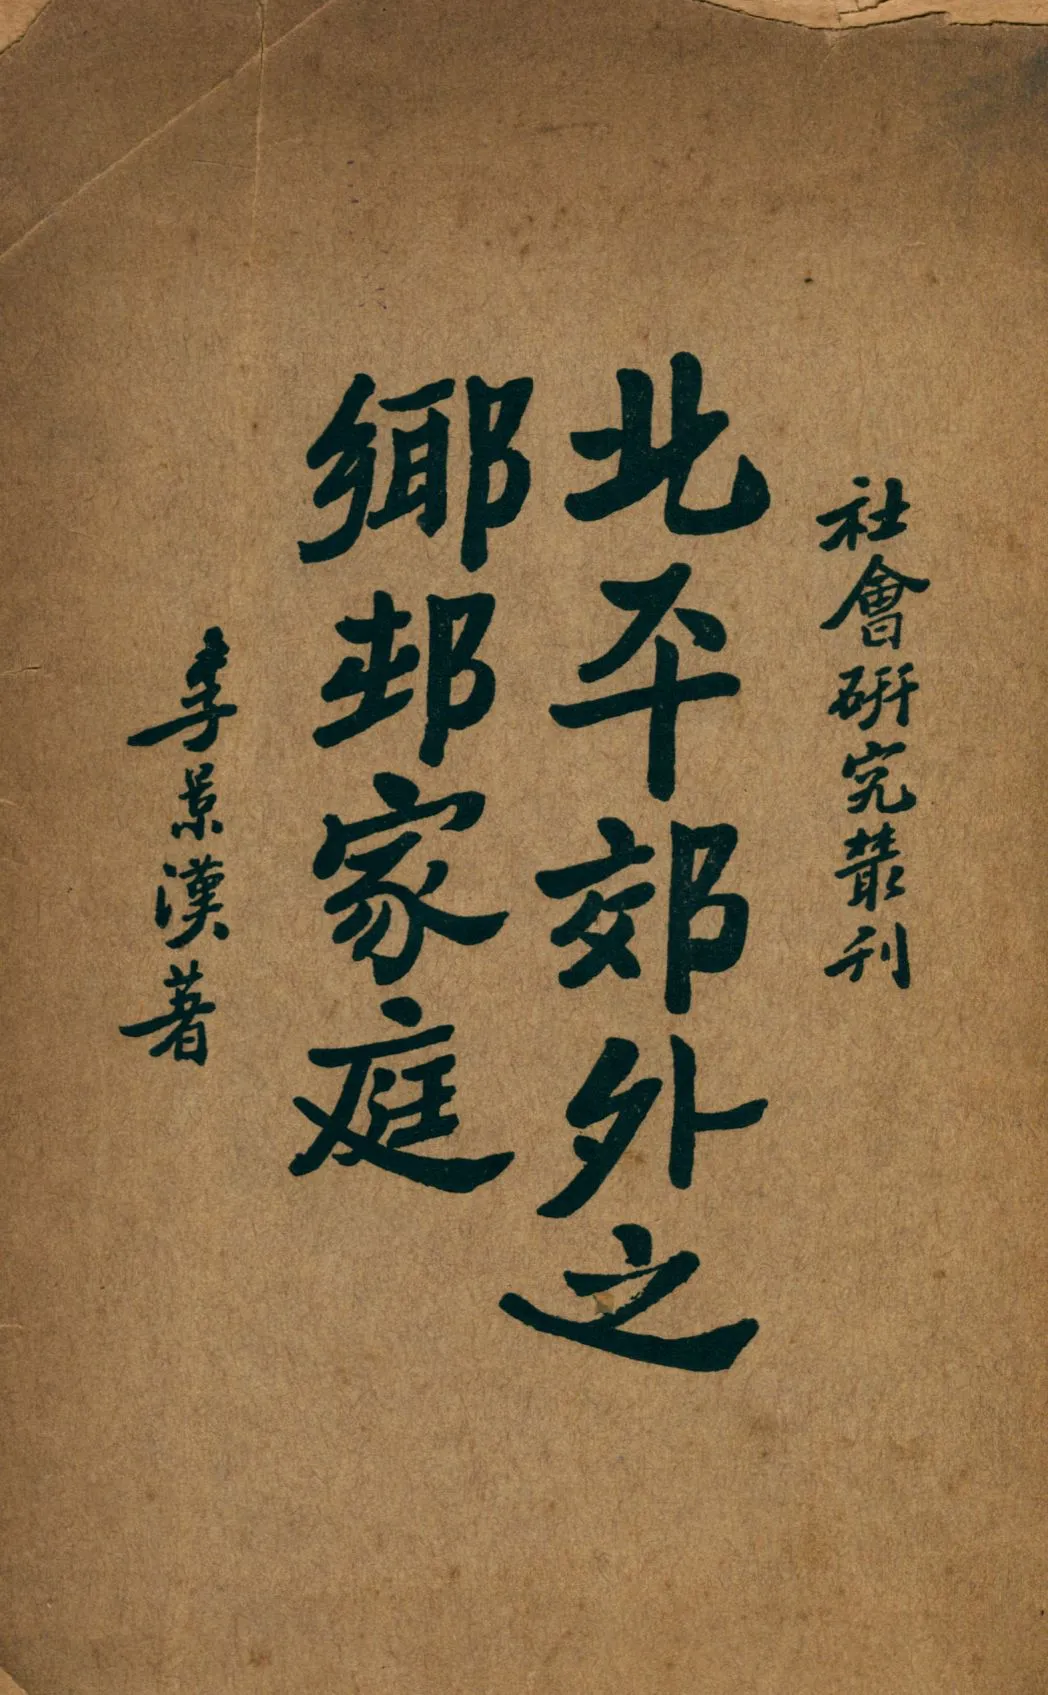 社會研究叢刊
北平郊外之
鄉邨家庭
李景漢著